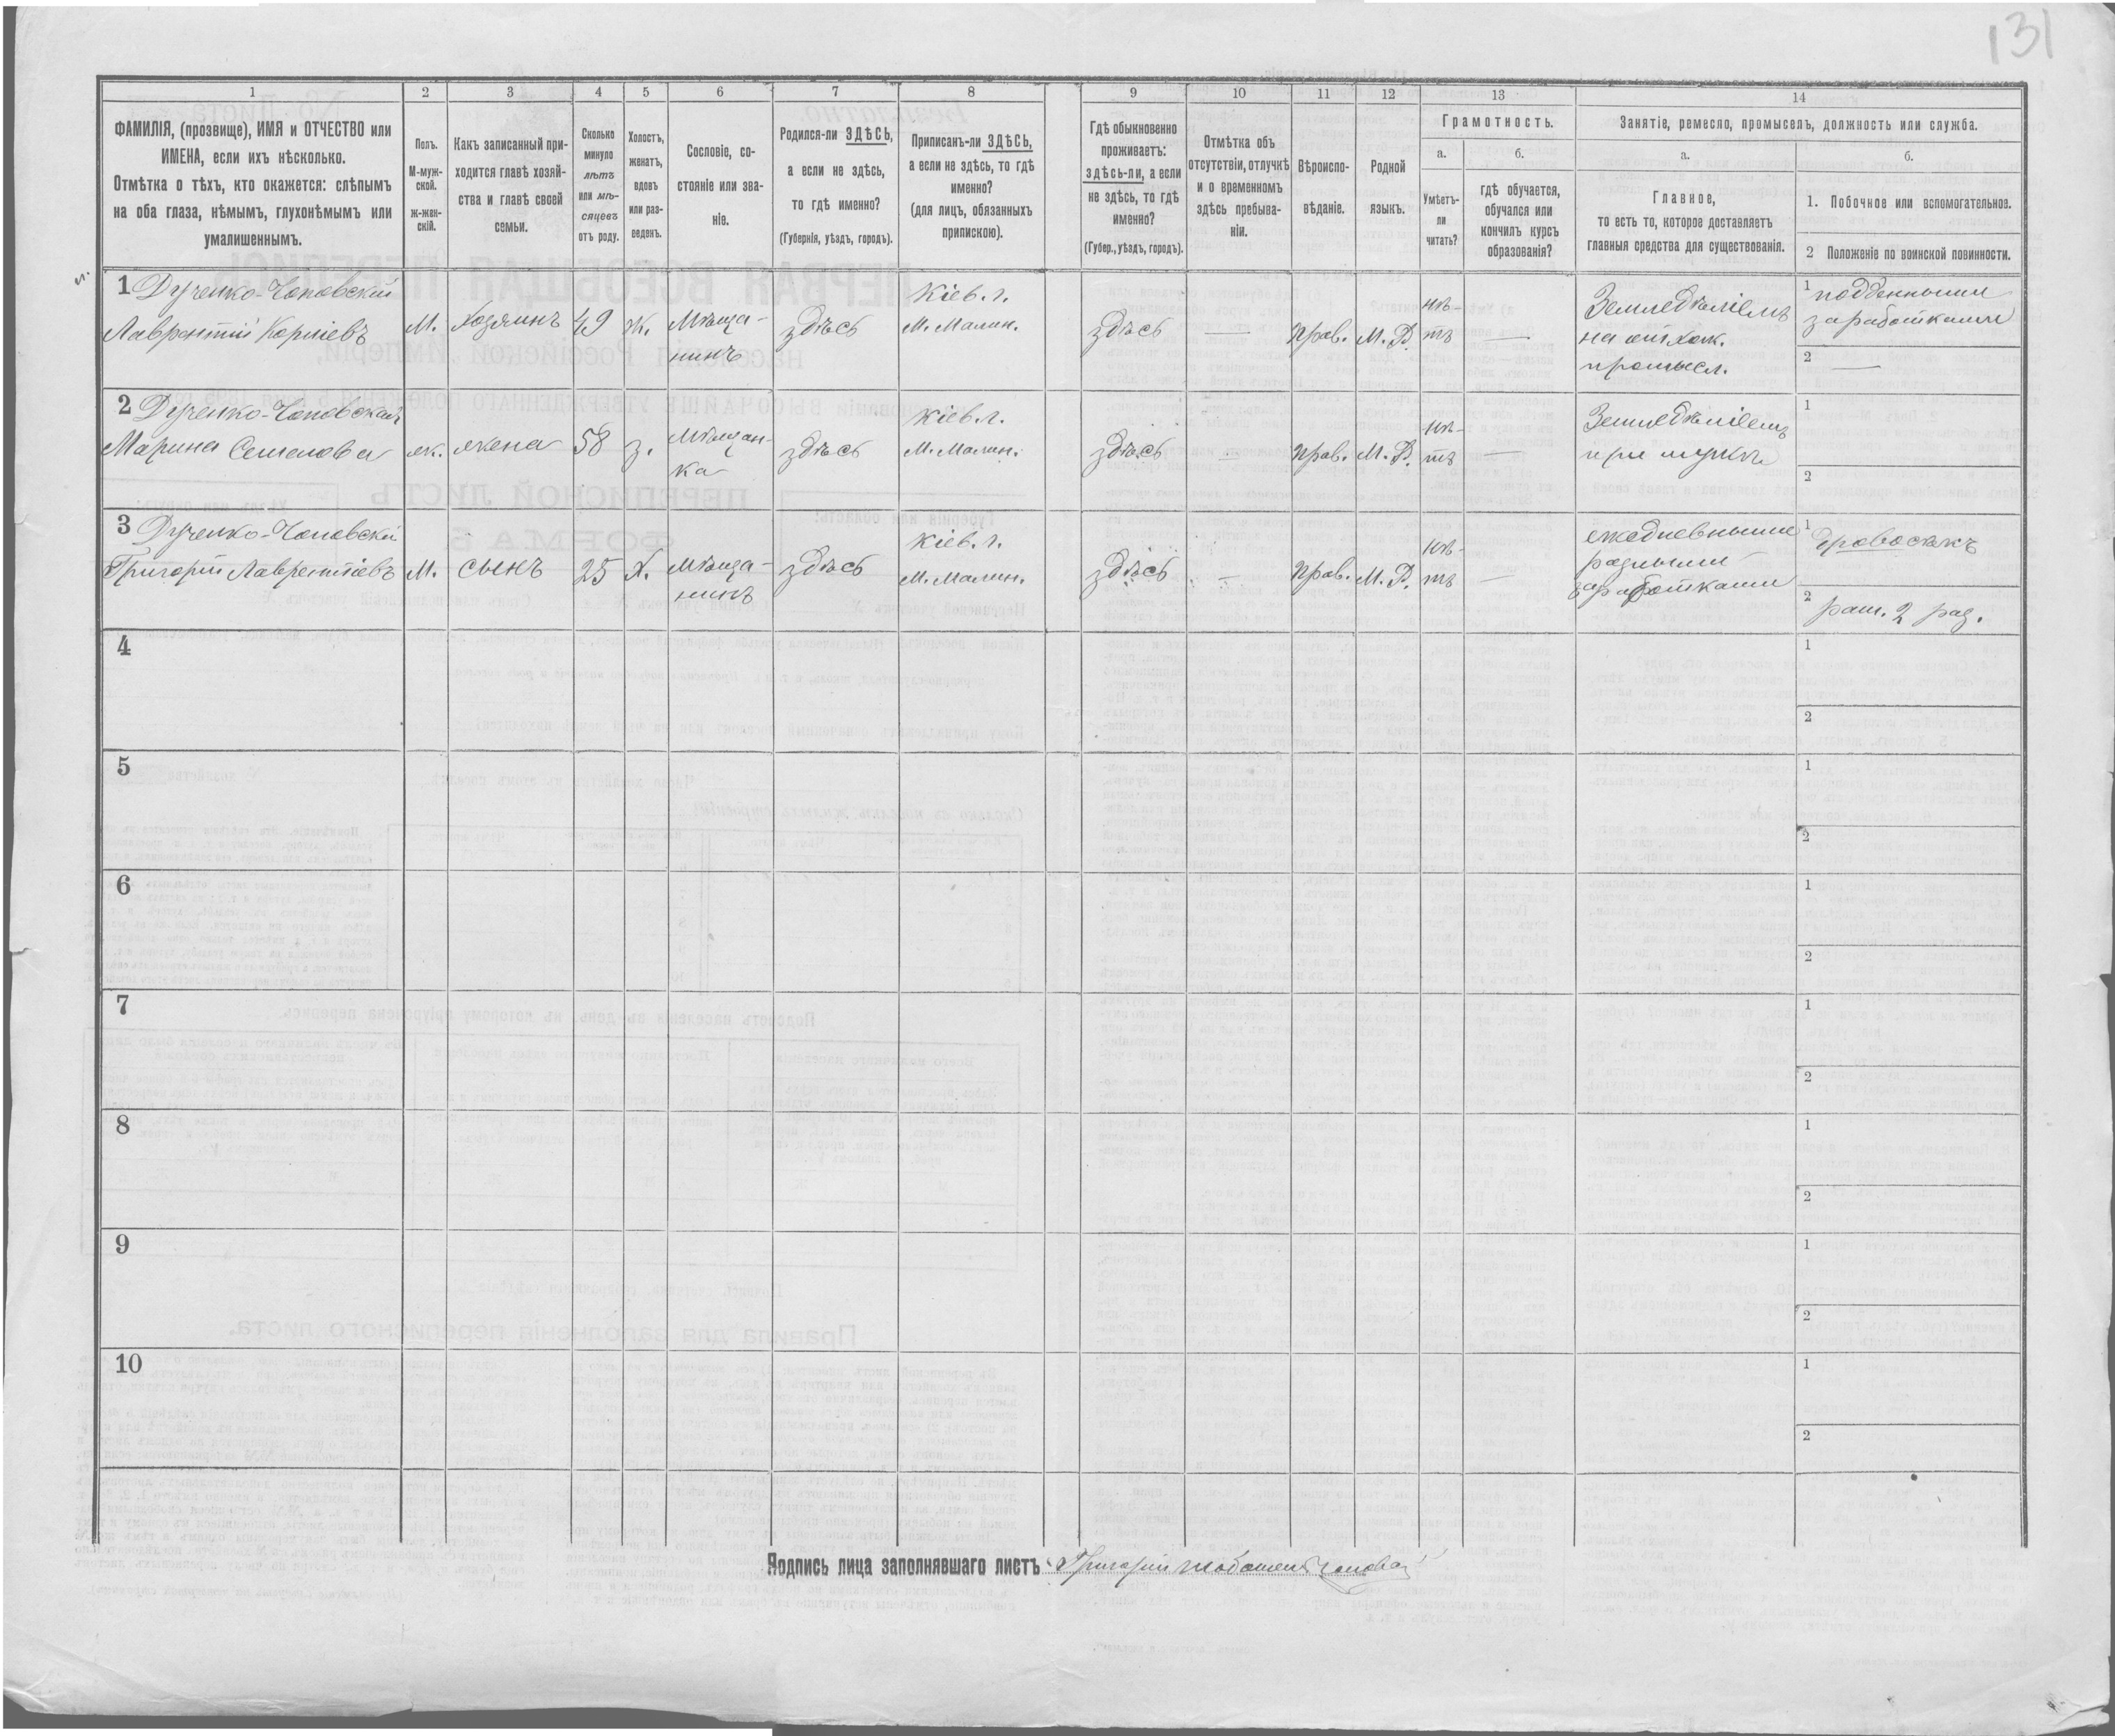 131
1
2
3
4
5
6
7
8
9
10
11
12
13
14
ФАМИЛІЯ, (прозвище), ИМЯ и ОТЧЕСТВО или
ИМЕНА, если ихъ нѣсколько.
Отмѣтка о тѣхъ, кто окажется: слѣпымъ
на оба глаза, нѣмымъ, глухонѣмымъ или
умалишеннымъ.
Полъ.
М-муж-
ской.
ж-жен-
скій.
Какъ записанный при-
ходится главѣ хозяй-
ства и главѣ своей
семьи.
Сколько
минуло
лѣтъ
или мѣ-
сяцевъ
отъ роду.
Холостъ,
женатъ,
вдовъ
или раз-
веденъ.
Сословіе, со-
стояніе или зва-
ніе.
Родился-ли ЗДѢСЬ,
а если не здѣсь,
то гдѣ именно?
(Губернія, уѣздъ, городъ).
Приписанъ-ли ЗДѢСЬ,
а если не здѣсь, то гдѣ
именно?
(для лицъ, обязанныхъ
припискою).
Гдѣ обыкновенно
проживаетъ:
здѣсь-ли, а если
не здѣсь, то гдѣ
именно?
(Губер., уѣздъ, городъ).
Отмѣтка объ
отсутствіи, отлучкѣ
и о временномъ
здѣсь пребыва-
ніи.
Вѣроиспо-
вѣданіе.
Родной
языкъ.
Грамотность.
а.
Умѣетъ-
ли
читать?
б.
гдѣ обучается,
обучался или
кончилъ курсъ
образованія?
Занятіе, ремесло, промыселъ, должность или служба.
а.
Главное,
то есть то, которое доставляетъ
главныя средства для существованія.
б.
1. Побочное или вспомогательное.
2 Положеніе по воинской повинности.
1
Лаврентій Корніевъ
М.
Хозяинъ
49
Ж.
Мѣща-
нинъ
здѣсь
Кіев. г.
М. Малин.
здѣсь
—
Прав.
М. Р.
нѣ-
тъ
—
Земледѣліемъ
на отхож.
промысл.
1 подденными
заработками
2 —
2
Марина Семенова
ж.
жена
58
з.
Мѣщан-
ка
здѣсь
Кіев. г.
М. Малин.
здѣсь
—
Прав.
М. Р.
нѣ-
тъ
—
Земледѣліемъ
при мужѣ
1
2
3
Григорій Лаврентіевъ
М.
сынъ
25
Х.
Мѣща-
нинъ
здѣсь
Кіев. г.
М. Малин.
здѣсь
—
Прав.
М. Р.
нѣ-
тъ
—
ежедневными
разными
заработками
1 дровосѣкъ
2 рат. 2 раз.
4
1
2
5
1
2
6
1
2
7
1
2
8
1
2
9
1
2
10
1
2
Подпись лица заполнявшаго листъ Григорій